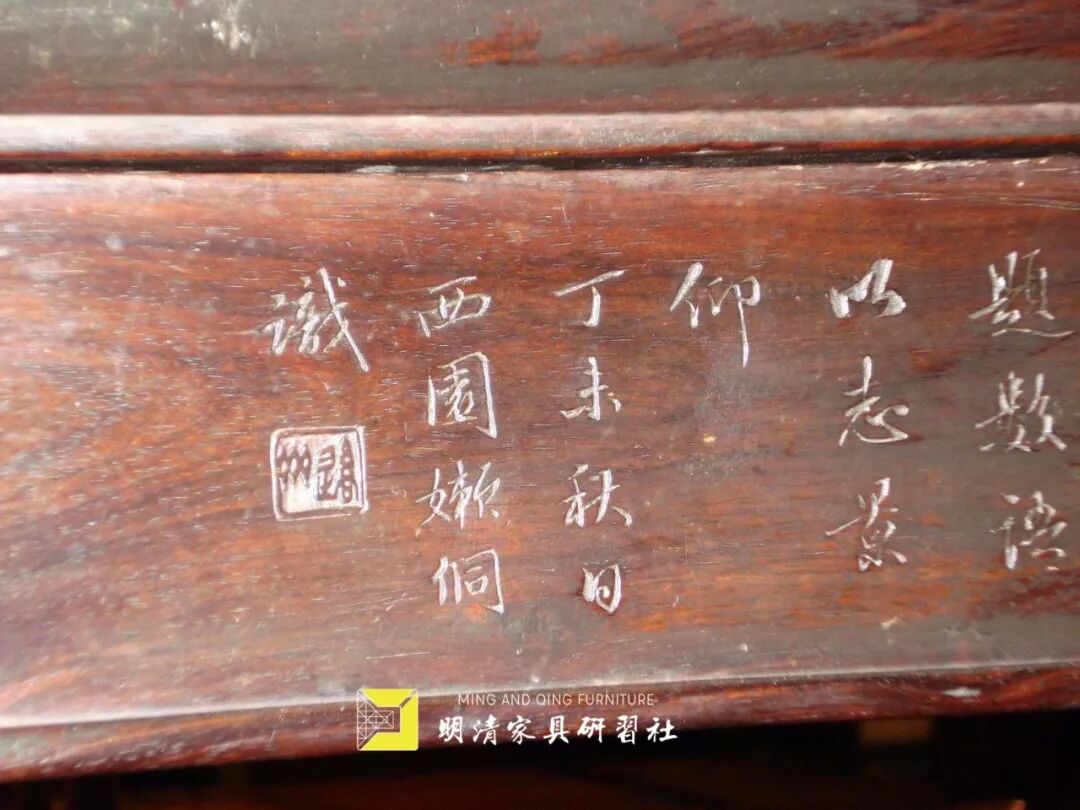 題數語
以志景
仰
丁未秋日
西園嬾侗
識
MING AND QING FURNITURE
明清家具研習社